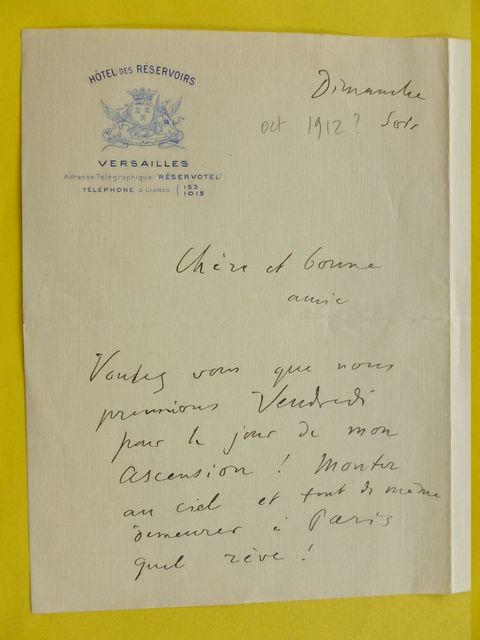 HÔTEL DES RÉSERVOIRS
VERSAILLES
Adresse Télégraphique "RÉSERVOTEL"
TÉLÉPHONE 2 LIGNES { 153
1013
Dimanche
Soir
oct 1912?
Chère et bonne
amie
Voulez vous que nous
prenions Vendredi
pour le jour de mon
Ascension ! Monter
au ciel et tout de même
demeurer à Paris
quel rêve !